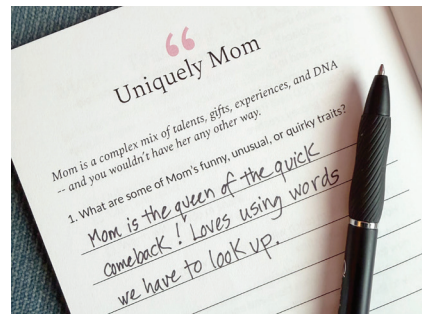 “
Uniquely Mom
Mom is a complex mix of talents, gifts, experiences, and DNA
-- and you wouldn't have her any other way.
1. What are some of Mom's funny, unusual, or quirky traits?
Mom is the queen of the quick
comeback! Loves using words
we have to look up.